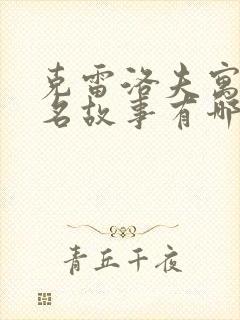 克雷洛夫寓
名故事有哪
青丘千夜